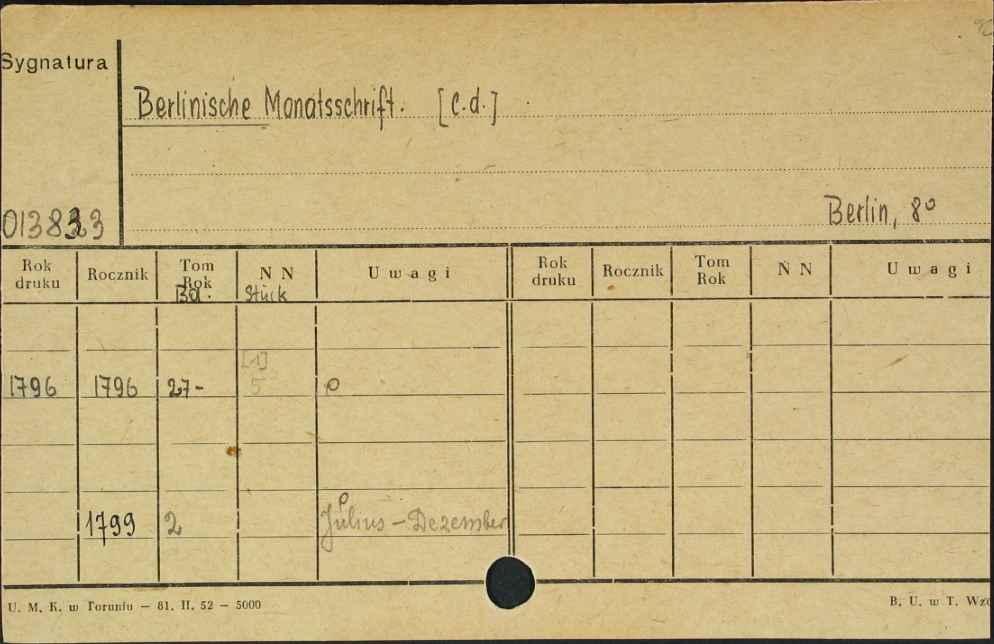 Sygnatura
Berlinische Monatsschrift. [c.d.]
Berlin, 8°
Rok druku Rocznik Tom Rok Bd. N N Stück Uwagi Rok druku Rocznik Tom Rok N N Uwagi
[1]
1796 1796 27- 5 o
1799 2 o Julius - Dezember
U. M. K. w Toruniu — 81. II. 52 — 5000
B. U. w T.